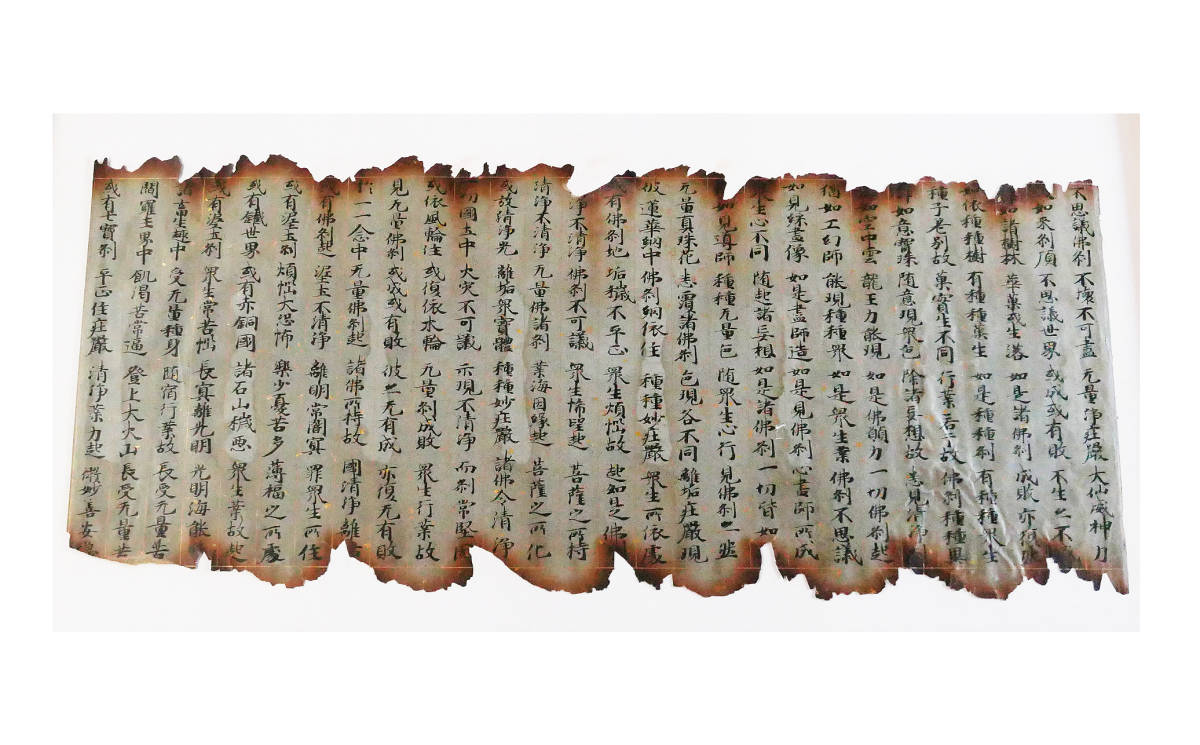 不思議佛刹 不壞不可盡 无量淨庄嚴 大仙威神力
或如來刹頂 不思議世界 或成或有敗 不生亡不
如諸樹林 華菓或生落 如是諸佛刹 成敗亦復
如依種種樹 有種種菓生 如是種種刹 有種種衆生
種子各別故 菓實生不同 行業若干故 佛刹種種異
如意寶珠 随意現衆色 除諸妄想故 悉見清淨
如空中雲 龍王力能現 如是佛願力 一切佛刹起
猶如工幻師 能現種種衆 如是衆生業 佛刹不思議
如見綵畫像 如是畫師造 如是見佛刹 心畫師所成
衆生心不同 随起諸妄想 如是諸佛刹 一切皆如
如見導師 種種无量色 随衆生心行 見佛刹亡然
无量真珠花 悉雷諸佛刹 色現各不同 離垢庄嚴現
彼蓮華網中 佛刹網依住 種種妙庄嚴 衆生所依處
或有佛刹地 垢穢不平正 衆生煩惱故 起如是之佛
淨不清淨 佛刹不可議 衆生悕望起 菩薩之所持
清淨不清淨 无量佛諸刹 業海因緣起 菩薩之所化
或放清淨光 離垢衆寶體 種種妙庄嚴 諸佛令清淨
切國土中 火災不可議 示現不清淨 而刹常堅
或依風輪住 或復依水輪 无量刹成敗 衆生行業故
見无量佛刹 或成或有敗 彼亡无有成 亦復无有敗
一一念中 无量佛刹起 諸佛所持故 國清淨離
或有佛刹起 泥土不清淨 離明常闇冥 罪衆生所住
或有泥土刹 煩惱大恐怖 樂少憂苦多 薄福之所處
或有鐵世界 或有赤銅國 諸石山穢惡 衆生業故起
或有泥土刹 衆生常苦惱 長冥離光明 光明海能
諸畜生趣中 受无量種身 随宿行業故 長受无量苦
閻羅王界中 飢渴苦常逼 登上大火山 長受无量苦
或有七寶刹 平正住庄嚴 清淨業力起 微妙善安